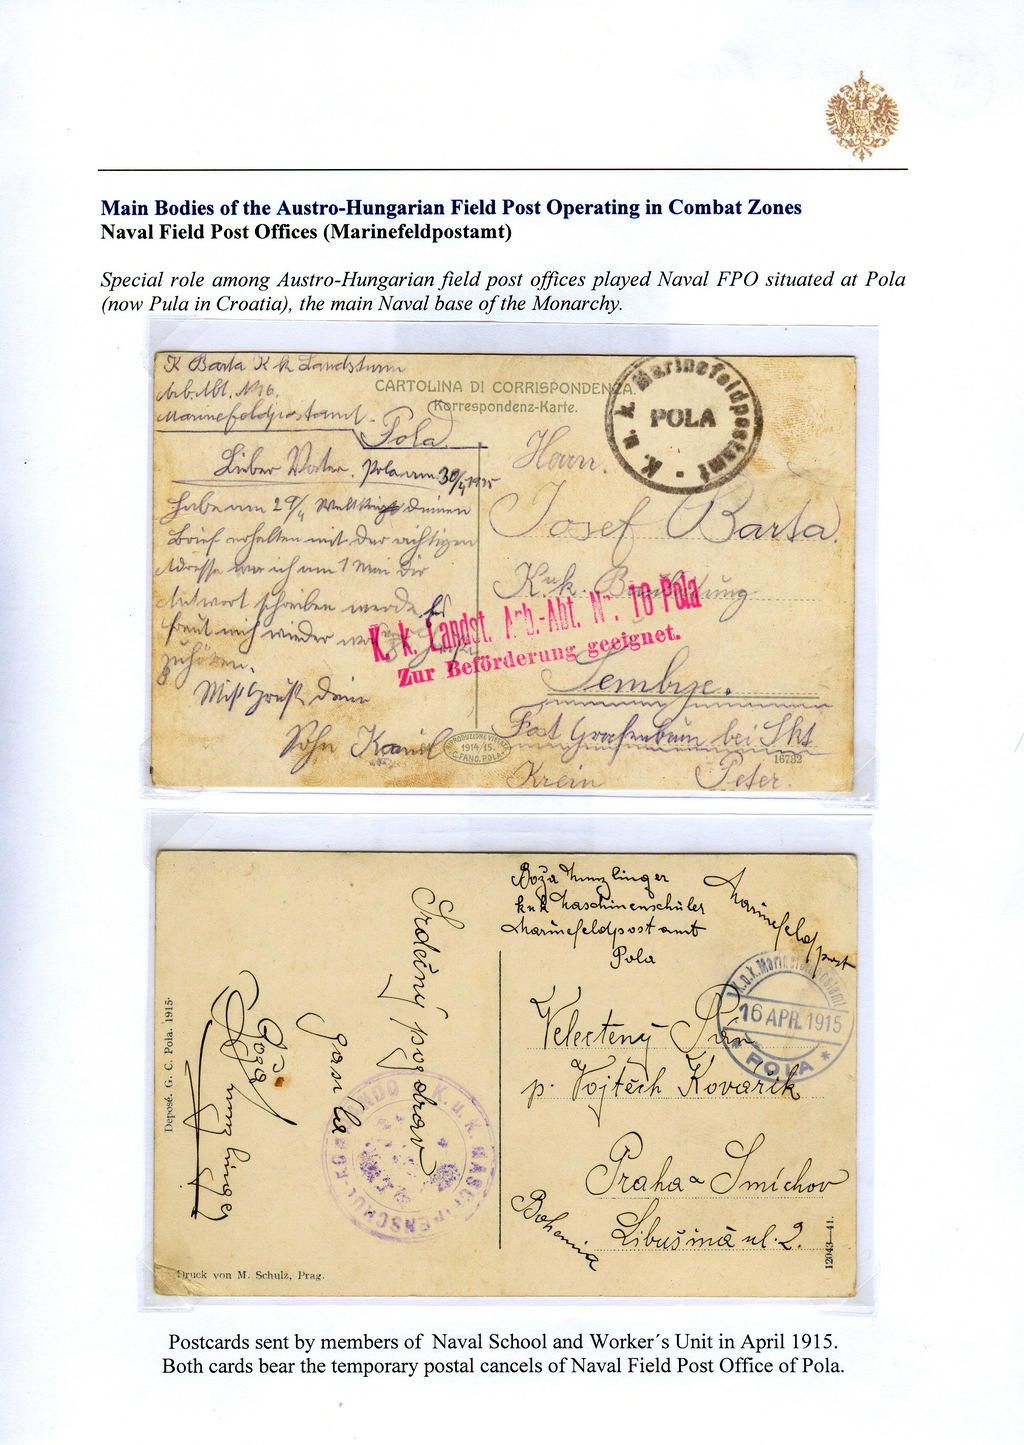 Main Bodies of the Austro-Hungarian Field Post Operating in Combat Zones
Naval Field Post Offices (Marinefeldpostamt)
Special role among Austro-Hungarian field post offices played Naval FPO situated at Pola
(now Pula in Croatia), the main Naval base of the Monarchy.
K Barta K k Landsturm
Arb. Abt. N 16.
Marinefeldpostamt.
Pola.
CARTOLINA DI CORRISPONDENZA.
Korrespondenz-Karte.
K. u. k. Marinefeldpostamt
POLA
Lieber Vater. Pola am 30/4 1915
habe am 29/4 deinen
Brief erhalten mit der richtigen
Adresse war ich am 1 Mai dir
Antwort schreiben werde Es
freut mich wieder
zuhören.
Mit Gruß dein
Sohn Kamil
Herrn.
Josef Barta.
K.u.k.
K. k. Landst. Arb.-Abt. Nr. 16 Pola
Zur Beförderung geeignet.
Sembije.
Post Grafenbrun bei Skt
Krein Peter.
1914/15.
C. FANO, POLA
16782
Boža
k u k Maschinenschüler
Marinefeldpostamt
Pola
Marinefeldpost
K.u.k. Marinefeldpostamt
16 APR. 1915
* POLA *
Velectený Pán
p. Vojtěch Kovařík
Praha - Smíchov
Libušina ul. 2.
Bohemia
Srdečný pozdrav
Boža
K. u. K. MASCHINENSCHUL-KOMMANDO
Deposé. G. C. Pola. 1915-
Druck von M. Schulz, Prag.
12043-41.
Postcards sent by members of Naval School and Worker´s Unit in April 1915.
Both cards bear the temporary postal cancels of Naval Field Post Office of Pola.